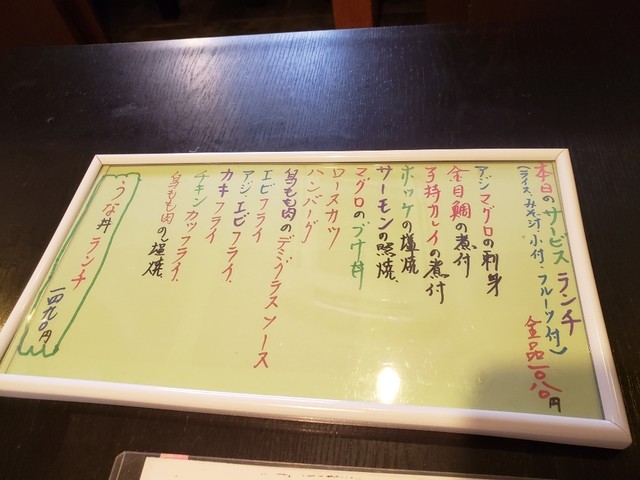 本日のサービスランチ
(ライス、みそ汁・小付・フルーツ付)
全品一〇八〇円
アジマグロの刺身
金目鯛の煮付
子持カレイの煮付
ホッケの塩焼
サーモンの照焼
マグロのヅケ丼
ロースカツ
ハンバーグ
鳥もも肉のデミグラスソース
エビフライ
アジ、エビフライ
カキフライ
チキンカツフライ
鳥もも肉の塩焼
うな丼ランチ
一四九〇円